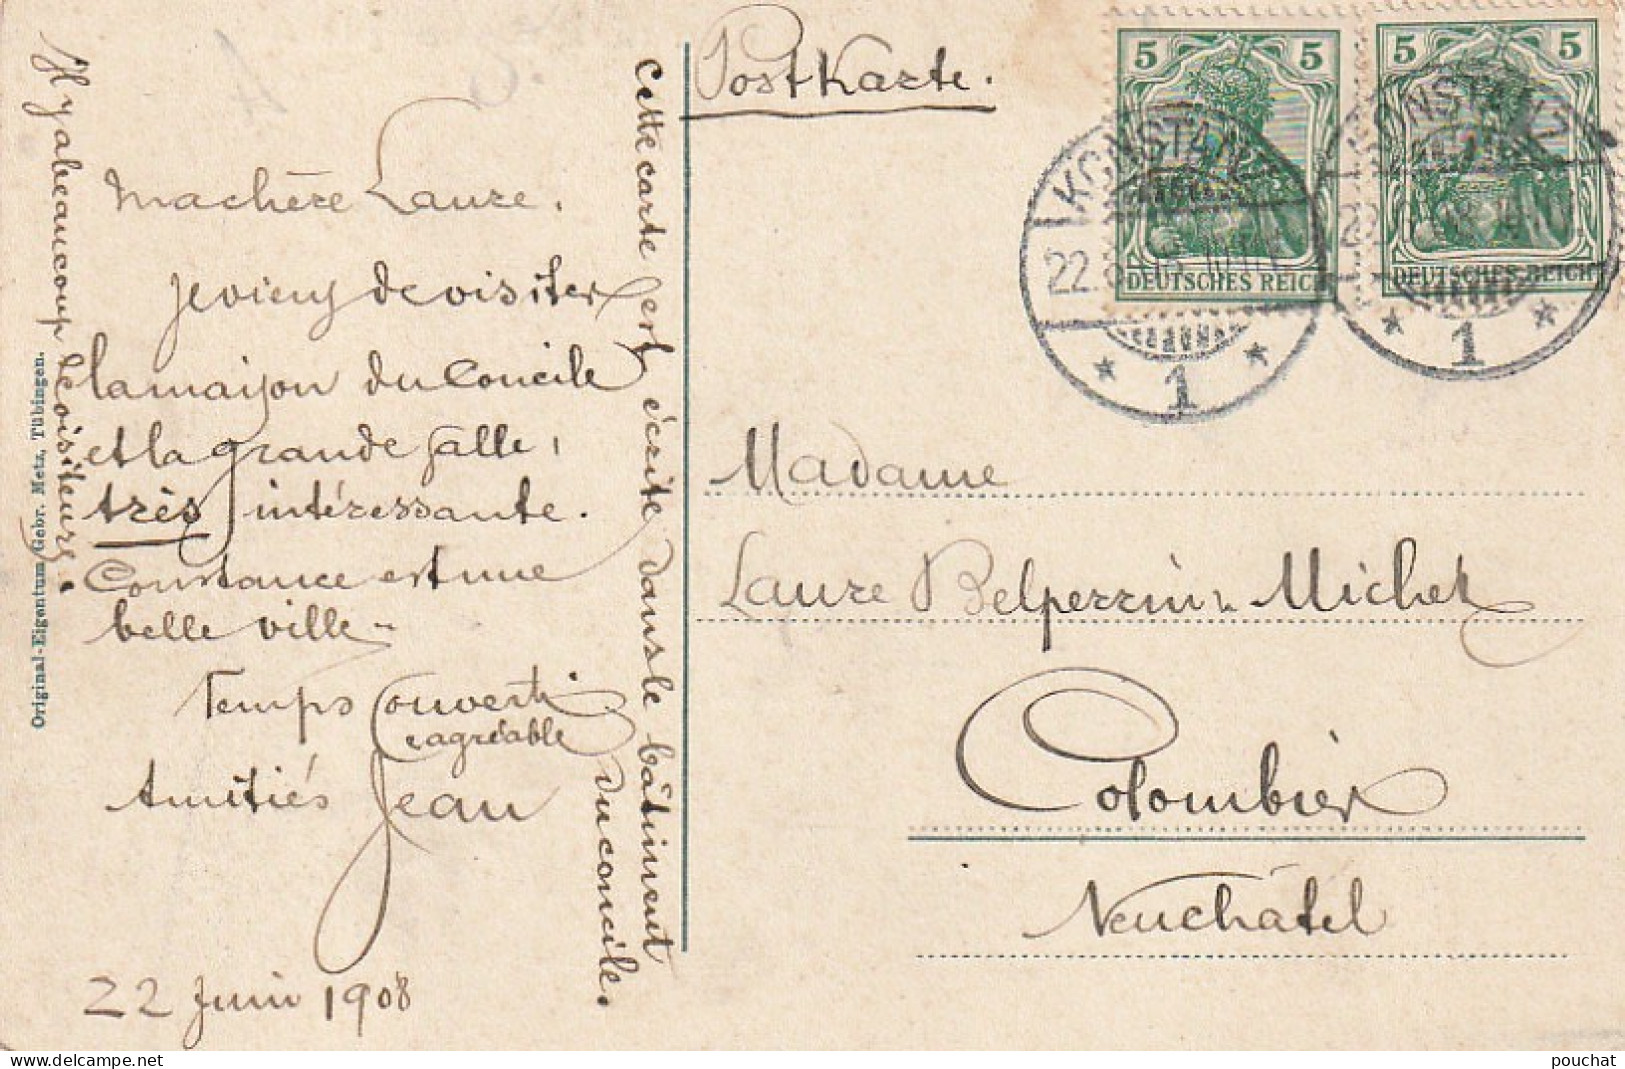 Postkarte.
Ma chère Laure.
Je viens de visiter
la maison du Concile
et la grande salle,
très intéressante.
Constance est une
belle ville
Temps couvert
agréable
Amitiés Jean
22 Juin 1908
Cette carte est écrite dans le bâtiment
du concile.
Il y a beaucoup de visiteurs.
Original-Eigentum Gebr. Metz, Tübingen.
5 5
DEUTSCHES REICH
5 5
DEUTSCHES REICH
KONSTANZ
22.
1
KONSTANZ
1
Madame
Laure Belperrin Michel
Colombier
Neuchâtel
pouchat